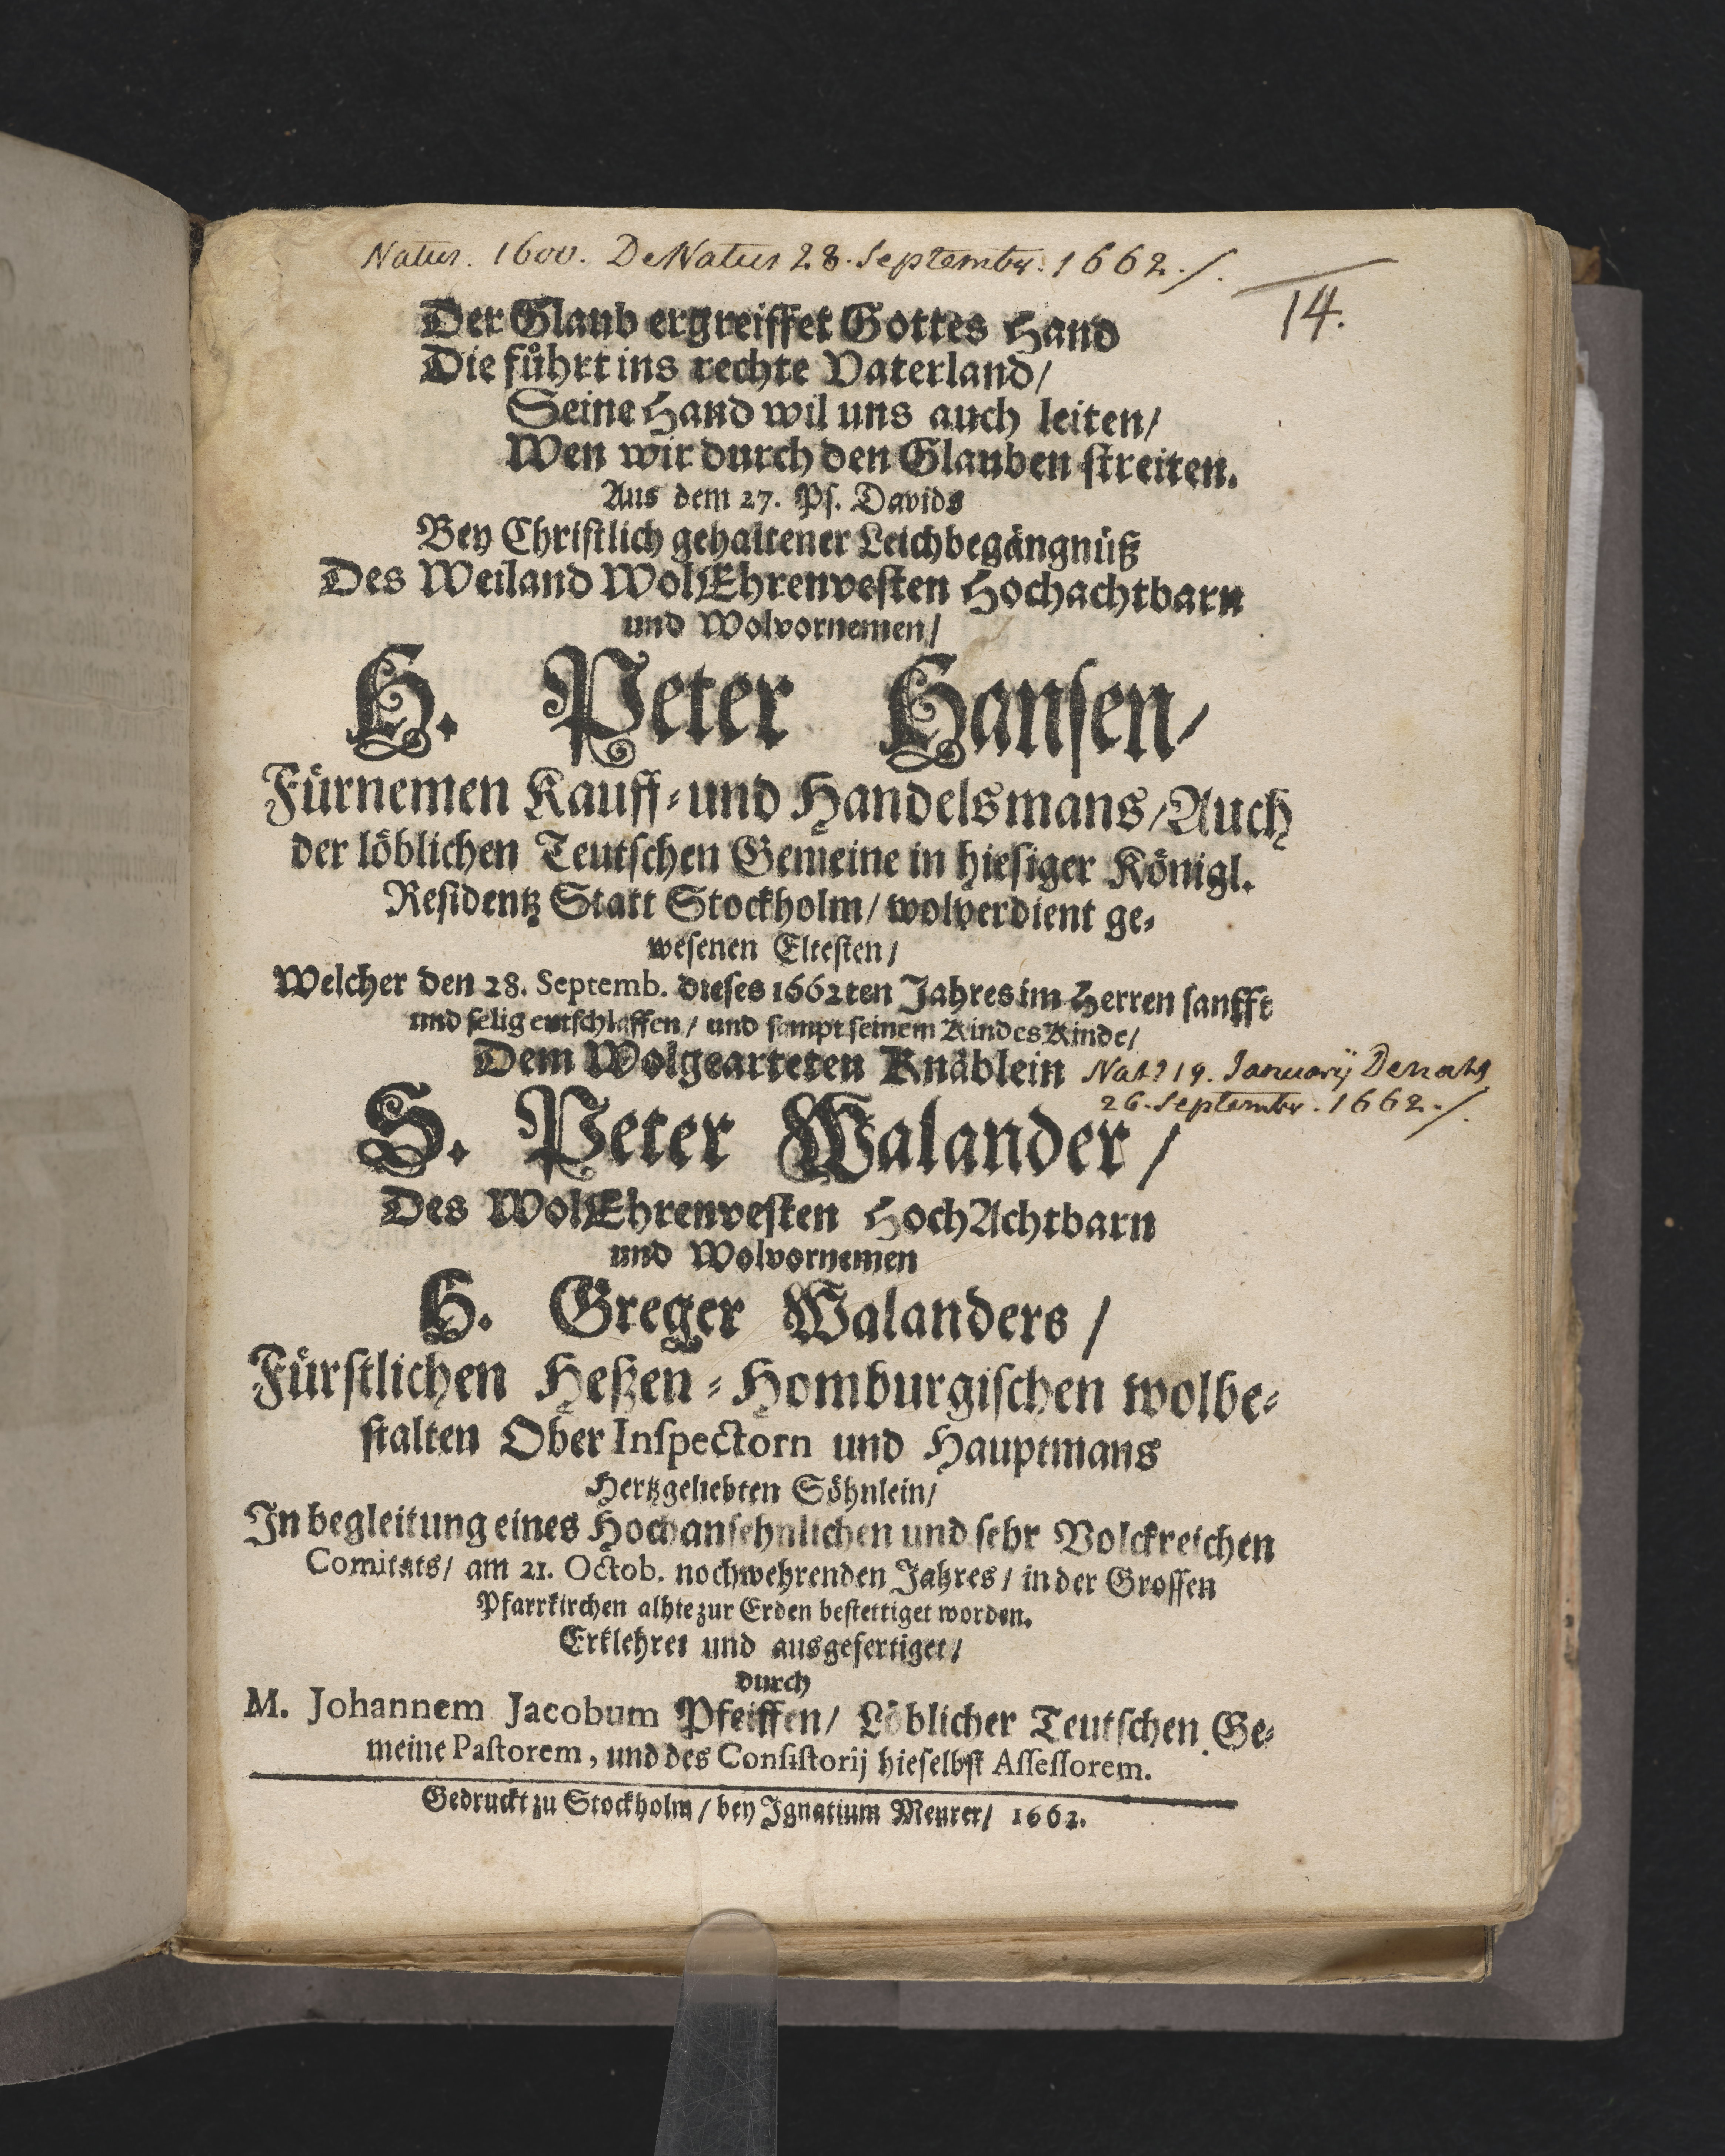 Natus. 1600. DeNatus 28. Septembr. 1662./.
14.
Der Glaub ergreiffet Gottes Hand
Die fůhrt ins rechte Vaterland/
Seine Hand wil uns auch leiten/
Wen wir durch den Glauben streiten.
Aus dem 27. Ps. Davids
Bey Christlich gehaltener Leichbegängnüß
Des Weiland WolEhrenvesten Hochachtbarn
und Wolvornemen/
H. Peter Hansen/
Fürnemen Kauff-und Handelsmans/Auch
der löblichen Teutschen Gemeine in hiesiger Königl.
Residentz Statt Stockholm/ wolverdient ge-
wesenen Eltesten/
Welcher den 28. Septemb. dieses 1662ten Jahres im Herren sanfft
und selig entschlaffen/ und sampt seinem KindesKinde/
Dem Wolgearteten Knäblein
Nat9 19. Januarij Denat9
26. Septembr. 1662./.
S. Peter Walander/
Des WolEhrenvesten HochAchtbarn
und Wolvornemen
H. Greger Walanders/
Fürstlichen Heßen-Homburgischen wolbe-
stalten Ober Inspectorn und Hauptmans
Hertzgeliebten Söhnlein/
In begleitung eines Hochansehnlichen und sehr Volckreichen
Comitats/ am 21. Octob. nochwehrenden Jahres/ in der Grossen
Pfarrkirchen alhie zur Erden bestettiget worden.
Erklehret und ausgefertiget/
durch
M. Johannem Jacobum Pfeiffen/ Löblicher Teutschen Ge-
meine Pastorem, und des Consistorij hieselbst Assessorem.
Gedruckt zu Stockholm/ bey Ignatium Meurer/ 1662.